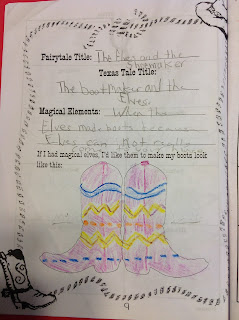 Fairytale Title: The Elves and the
Shoemaker
Texas Tale Title:
The Bootmaker and the
Elves.
Magical Elements: When the
Elves made boots because
Elves can Not really
If I had magical elves, I'd like them to make my boots look
like this:
9